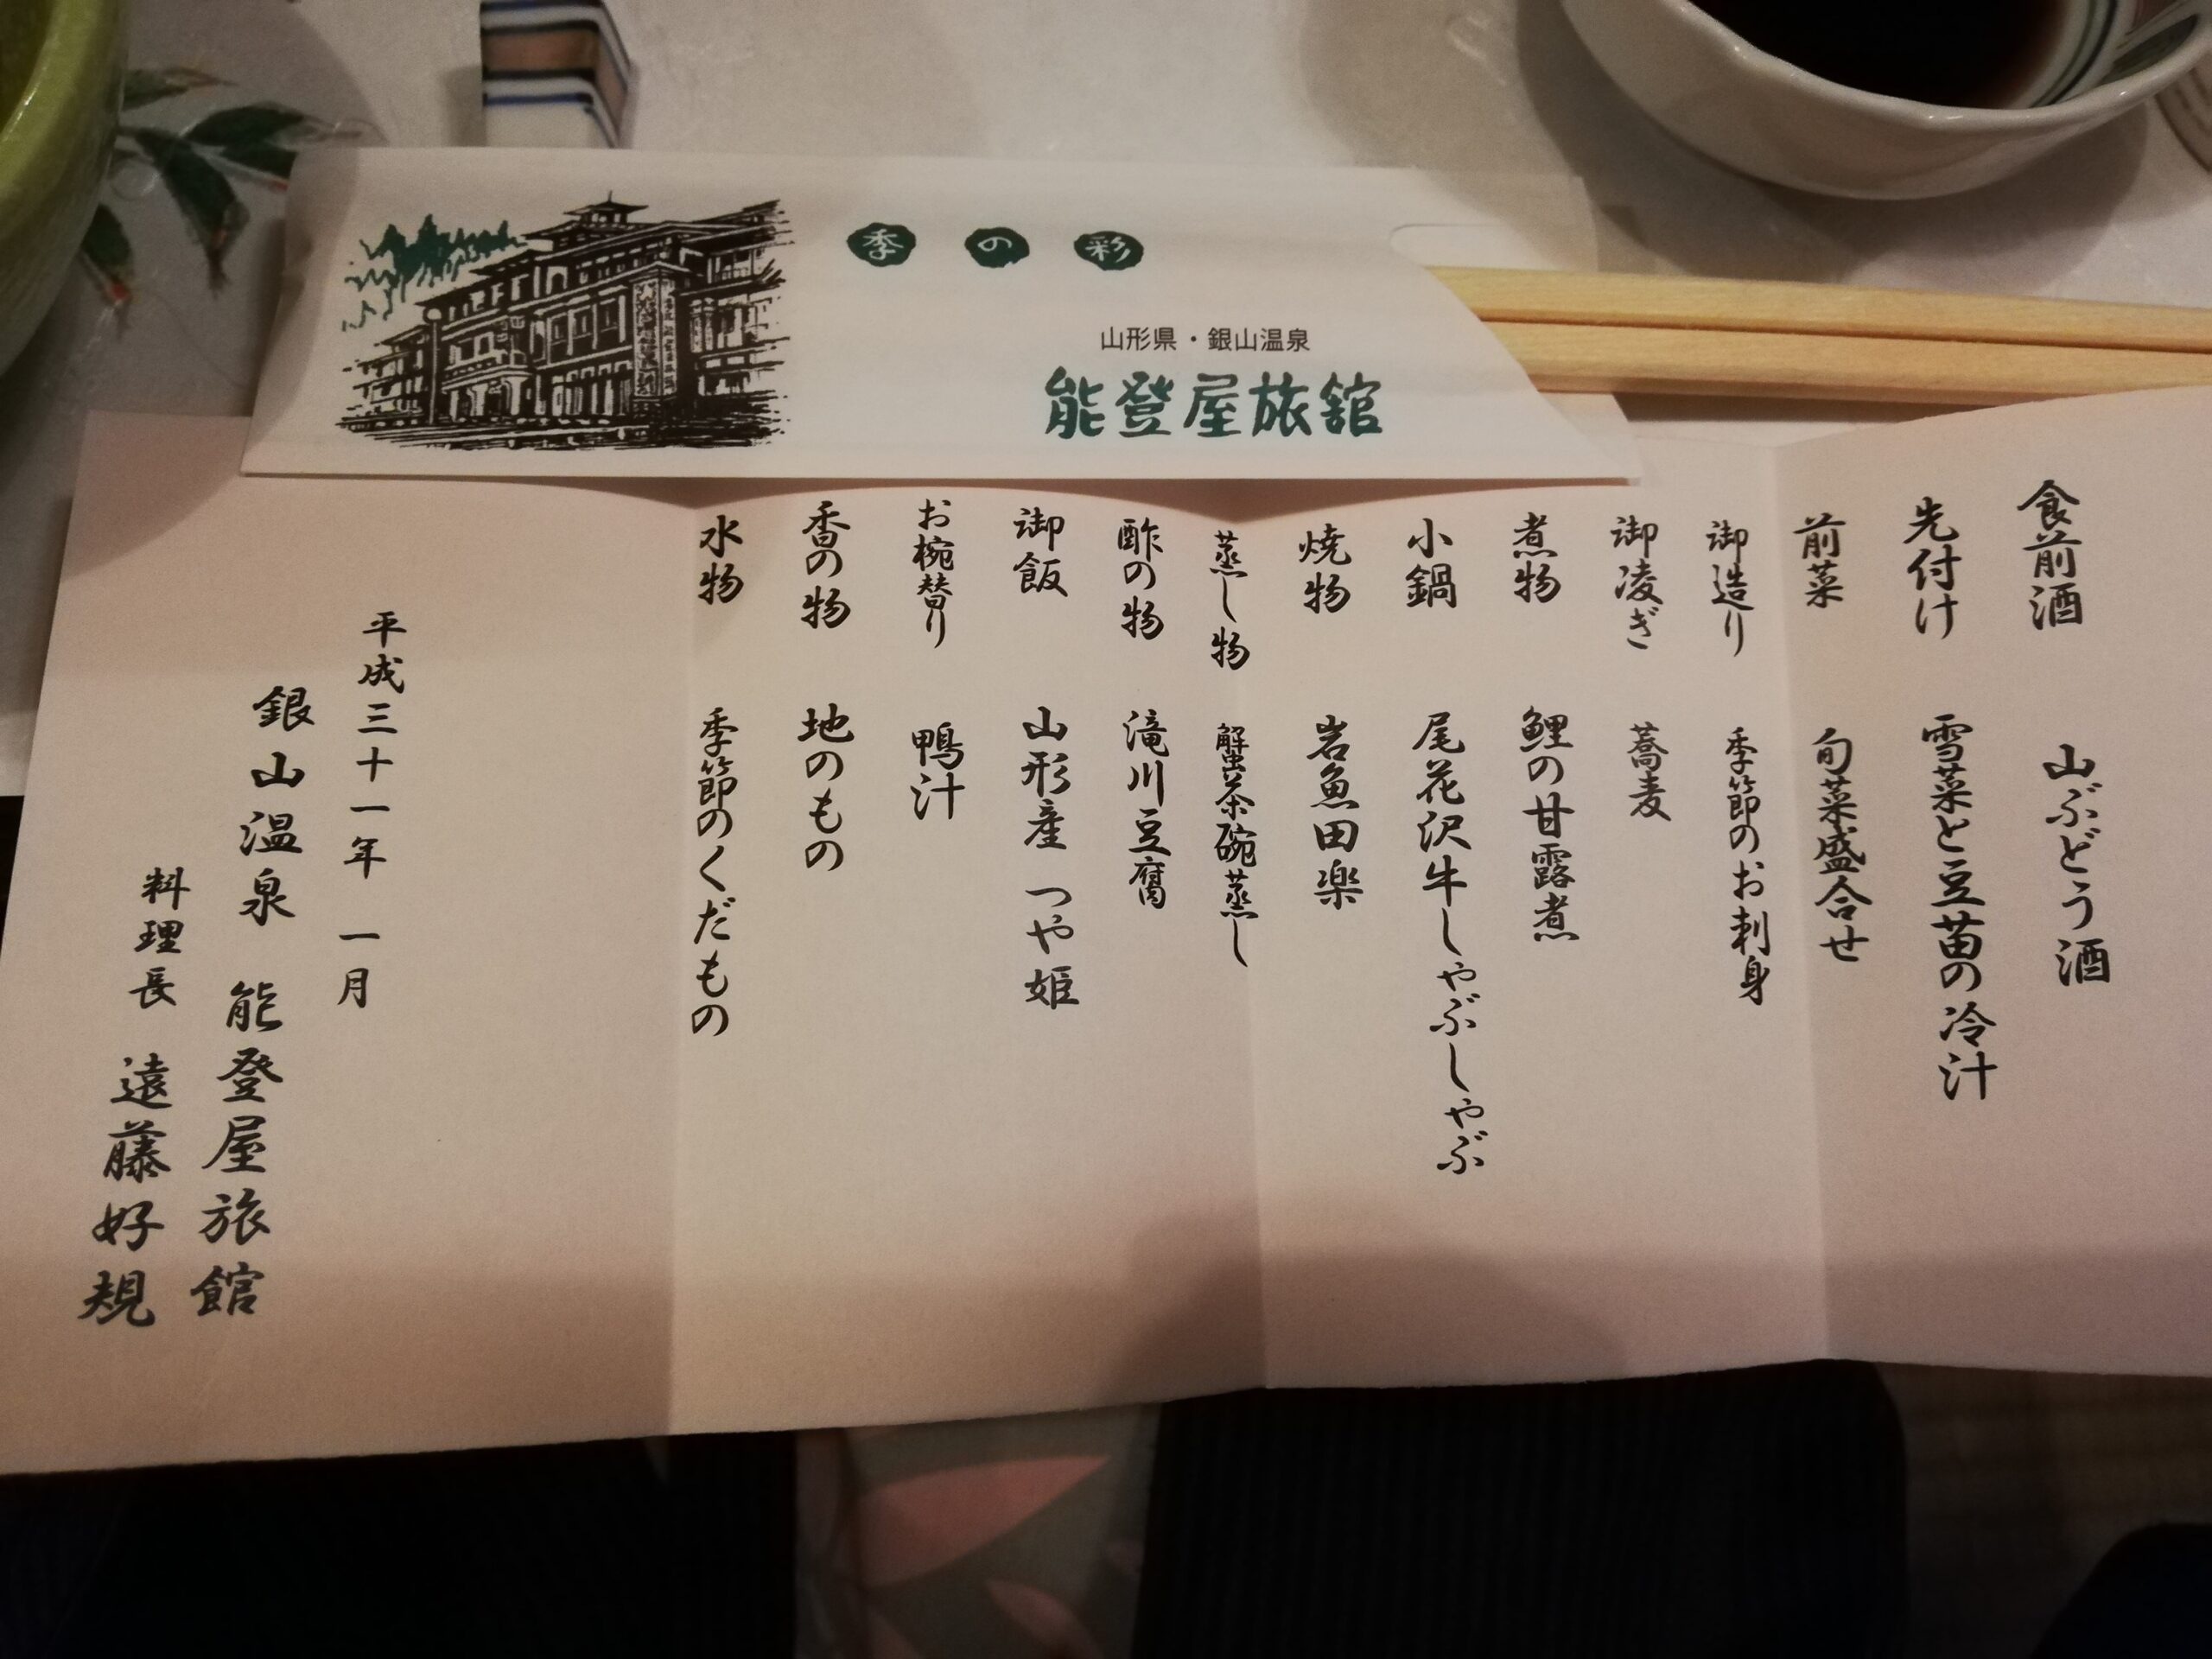 季の彩
山形県・銀山温泉
能登屋旅舘
食前酒　山ぶどう酒
先付け　雪菜と豆苗の冷汁
前菜　旬菜盛合せ
御造り　季節のお刺身
御凌ぎ　蕎麦
煮物　鯉の甘露煮
小鍋　尾花沢牛しゃぶしゃぶ
焼物　岩魚田楽
蒸し物　蟹茶碗蒸し
酢の物　滝川豆腐
御飯　山形産　つや姫
お椀替り　鴨汁
香の物　地のもの
水物　季節のくだもの
平成三十一年　一月
銀山温泉　能登屋旅館
料理長　遠藤好規